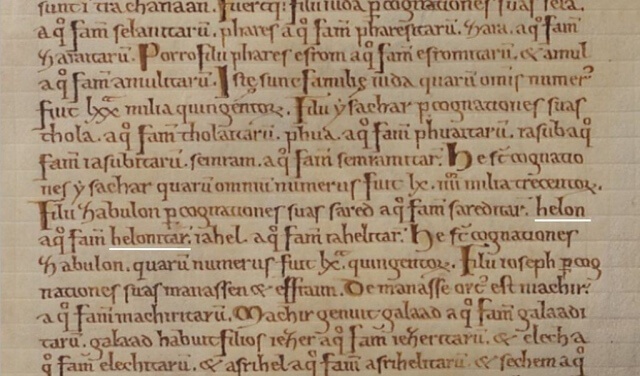 sunt i tra chanaan. Fuer qi. filii iuda p cognationes suas sela.
a q̊ fam̄ selanitarū. phares a q̊ fam̄ pharesitarū. & zara. a q̊ fam̄
& zaraitarū. Porro filii phares esrom a q̊ fam̄ esromitarū. & amul
a q̊ fam̄ amulitarū. Istę sunt familię iuda quarū omīs numer᾽
fuit lxxᵗᵃ milia quingentoꝝ. Filii ysachar p cognationes suas
thola. a q̊ fam̄ tholaitarū. phua. a q̊ fam̄ phuaitarū. iasub a q̊
fam̄ iasubitarū. semram. a q̊ fam̄ semramitar᾽. He sc̄ cognatio
nes ysachar quarū omniū numerus fuit lx. iiii milia trecentoꝝ.
Filii zabulon p cognationes suas sared a q̊ fam̄ sareditar᾽. helon
a q̊ fam̄ helonitar᾽. iahel. a q̊ fam̄ iahelitar᾽. He sc̄ cognationes
zabulon. quarū numerus fuit lxᵗᵃ. quingentoꝝ. Filii ioseph p cog
nationes suas manassen & effraim. De manasse ort᾽ est machir᾽
a q̊ fam̄ machiritarū. Machir genuit galaad a q̊ fam̄ galaadi
tarū. galaad habuit filios iezer a q̊ fam̄ iezeritarū. & elech a
q̊ fam̄ elechitarū. & asrihel a q̊ fam̄ asrihelitarū. & sechem a q̊